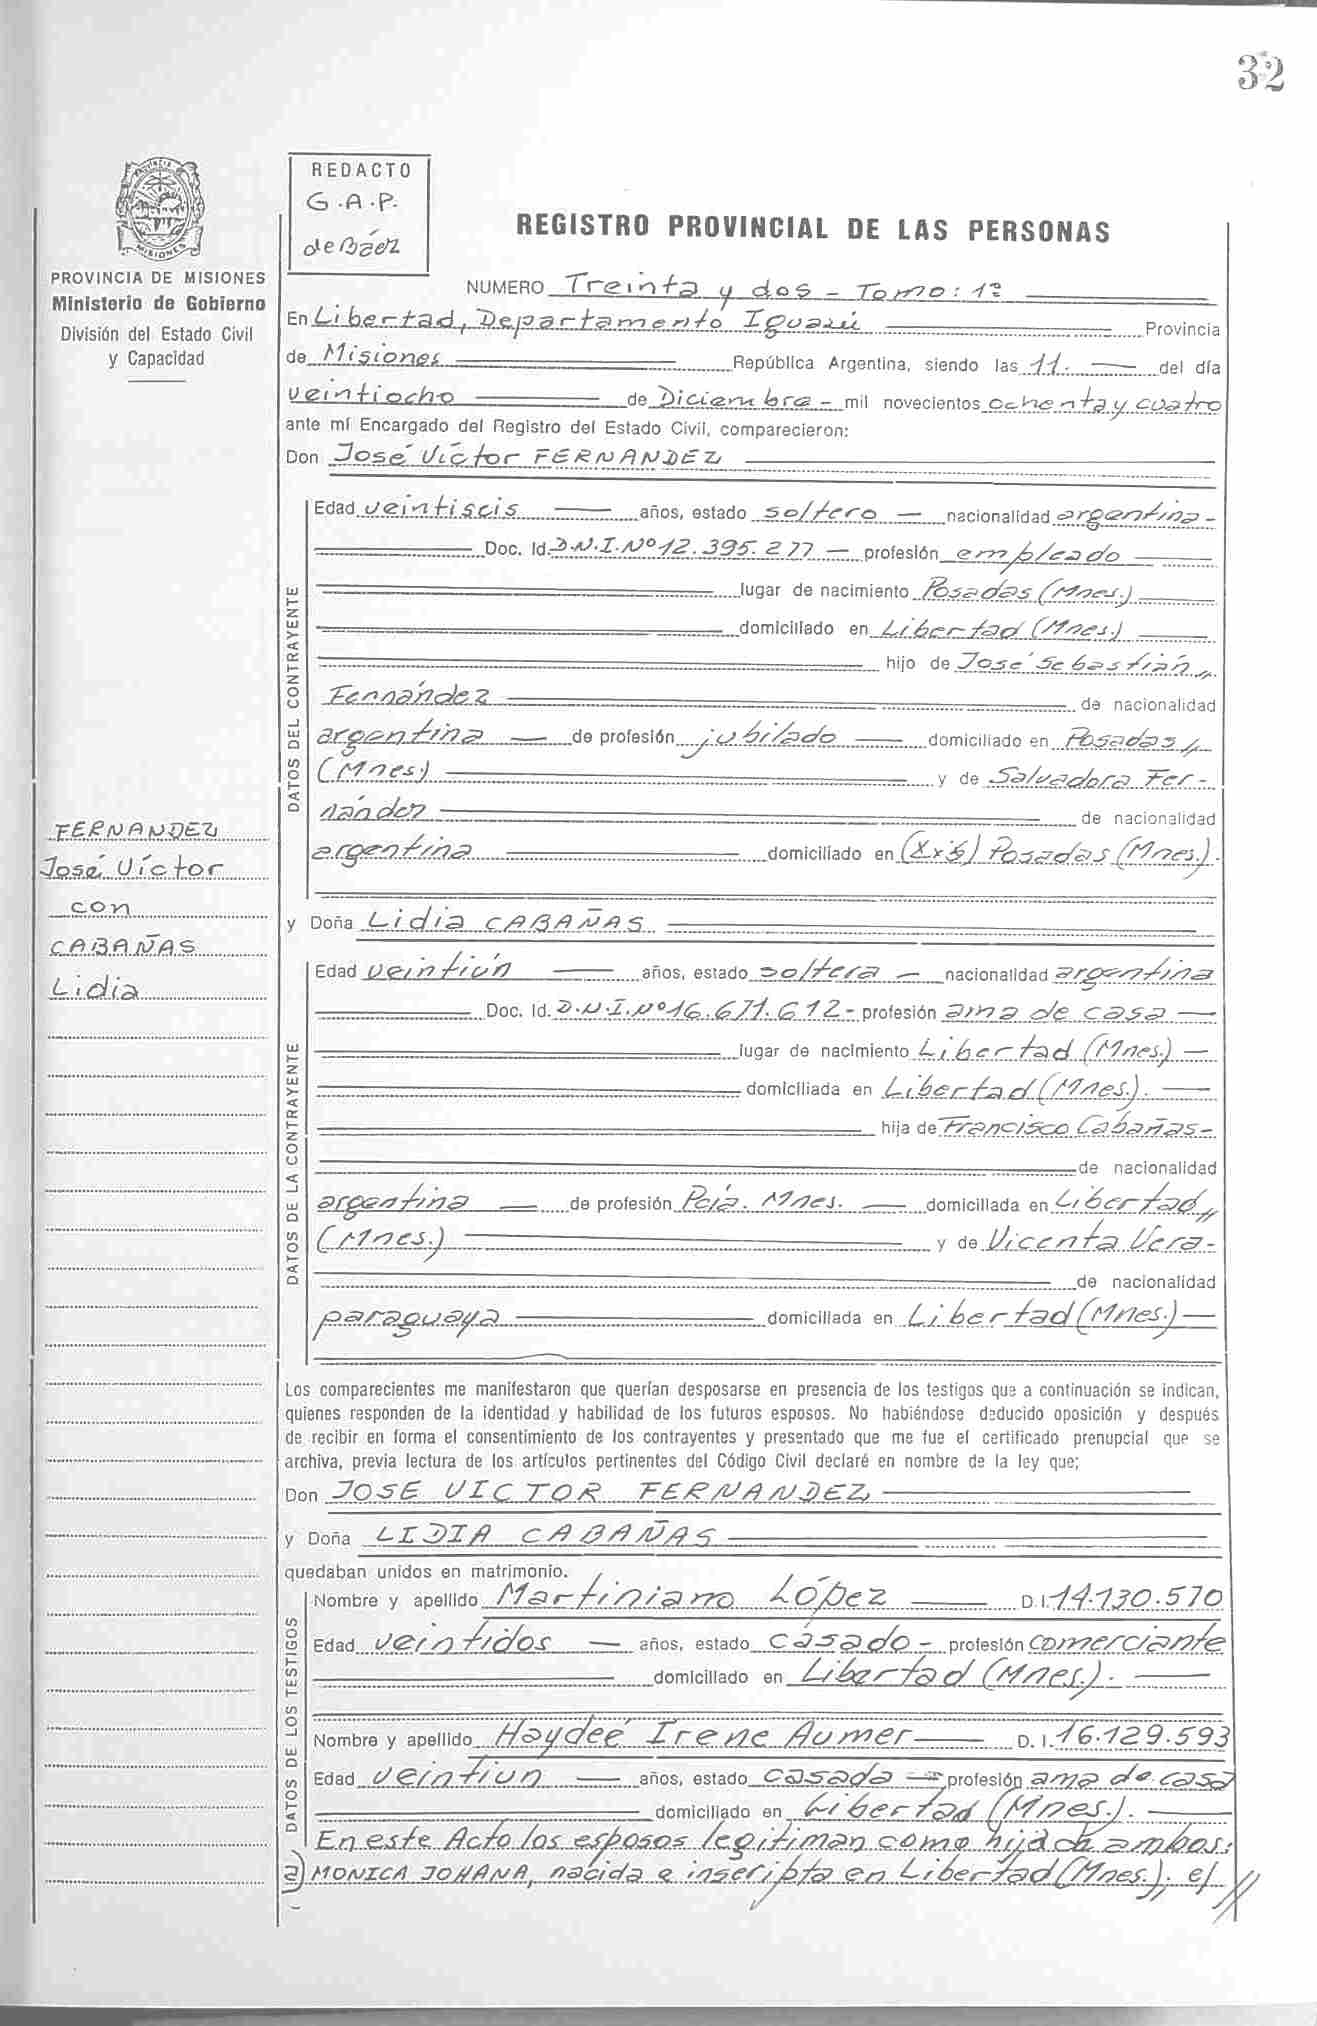 32
REDACTO
G.A.P.
de Báez
PROVINCIA DE MISIONES
Ministerio de Gobierno
División del Estado Civil
y Capacidad
REGISTRO PROVINCIAL DE LAS PERSONAS
NUMERO Treinta y dos - Tomo: 1º
En Libertad, Departamento Iguazú Provincia
de Misiones República Argentina, siendo las 11. del día
veintiocho de Diciembre - mil novecientos ochenta y cuatro
ante mí Encargado del Registro del Estado Civil, comparecieron:
Don José Víctor FERNANDEZ
DATOS DEL CONTRAYENTE
Edad veintiseis años, estado soltero nacionalidad argentina -
Doc. Id. D.N.I. Nº 12.395.277 profesión empleado
lugar de nacimiento Posadas (Mnes.)
domiciliado en Libertad (Mnes.)
hijo de José Sebastián
Fernández de nacionalidad
argentina de profesión jubilado domiciliado en Posadas
(Mnes.) y de Salvadora Fer-
nández de nacionalidad
argentina domiciliado en Posadas (Mnes.).
FERNANDEZ
José Víctor
con
CABAÑAS
Lidia
y Doña Lidia CABAÑAS
DATOS DE LA CONTRAYENTE
Edad veintiún años, estado soltera nacionalidad argentina
Doc. Id. D.N.I. Nº 16.671.612 - profesión ama de casa
lugar de nacimiento Libertad (Mnes.)
domiciliada en Libertad (Mnes.).
hija de Francisco Cabañas -
de nacionalidad
argentina de profesión Pcia. Mnes. domiciliada en Libertad
(Mnes.) y de Vicenta Vera -
de nacionalidad
paraguaya domiciliada en Libertad (Mnes.)
Los comparecientes me manifestaron que querían desposarse en presencia de los testigos que a continuación se indican,
quienes responden de la identidad y habilidad de los futuros esposos. No habiéndose deducido oposición y después
de recibir en forma el consentimiento de los contrayentes y presentado que me fue el certificado prenupcial que se
archiva, previa lectura de los artículos pertinentes del Código Civil declaré en nombre de la ley que;
Don JOSE VICTOR FERNANDEZ
y Doña LIDIA CABAÑAS
quedaban unidos en matrimonio.
DATOS DE LOS TESTIGOS
Nombre y apellido Martiniano López D.I. 14.130.570
Edad veintidos años, estado casado - profesión comerciante
domiciliado en Libertad (Mnes.).
Nombre y apellido Haydeé Irene Aumer D.I. 16.129.593
Edad veintiun años, estado casada profesión ama de casa
domiciliado en Libertad (Mnes.).
En este Acto los esposos legitiman como hija de ambos:
a) MONICA JOHANA, nacida e inscripta en Libertad (Mnes.), el //